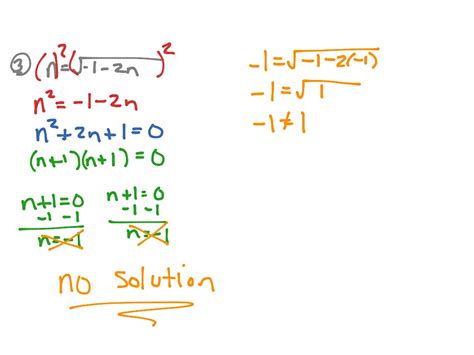 ③ (n)² = (√-1-2n)²
n² = -1-2n
n²+2n+1=0
(n+1)(n+1)=0
n+1=0 n+1=0
-1 -1 -1 -1
n=-1 n=-1
no solution
-1=√-1-2(-1)
-1=√1
-1≠1